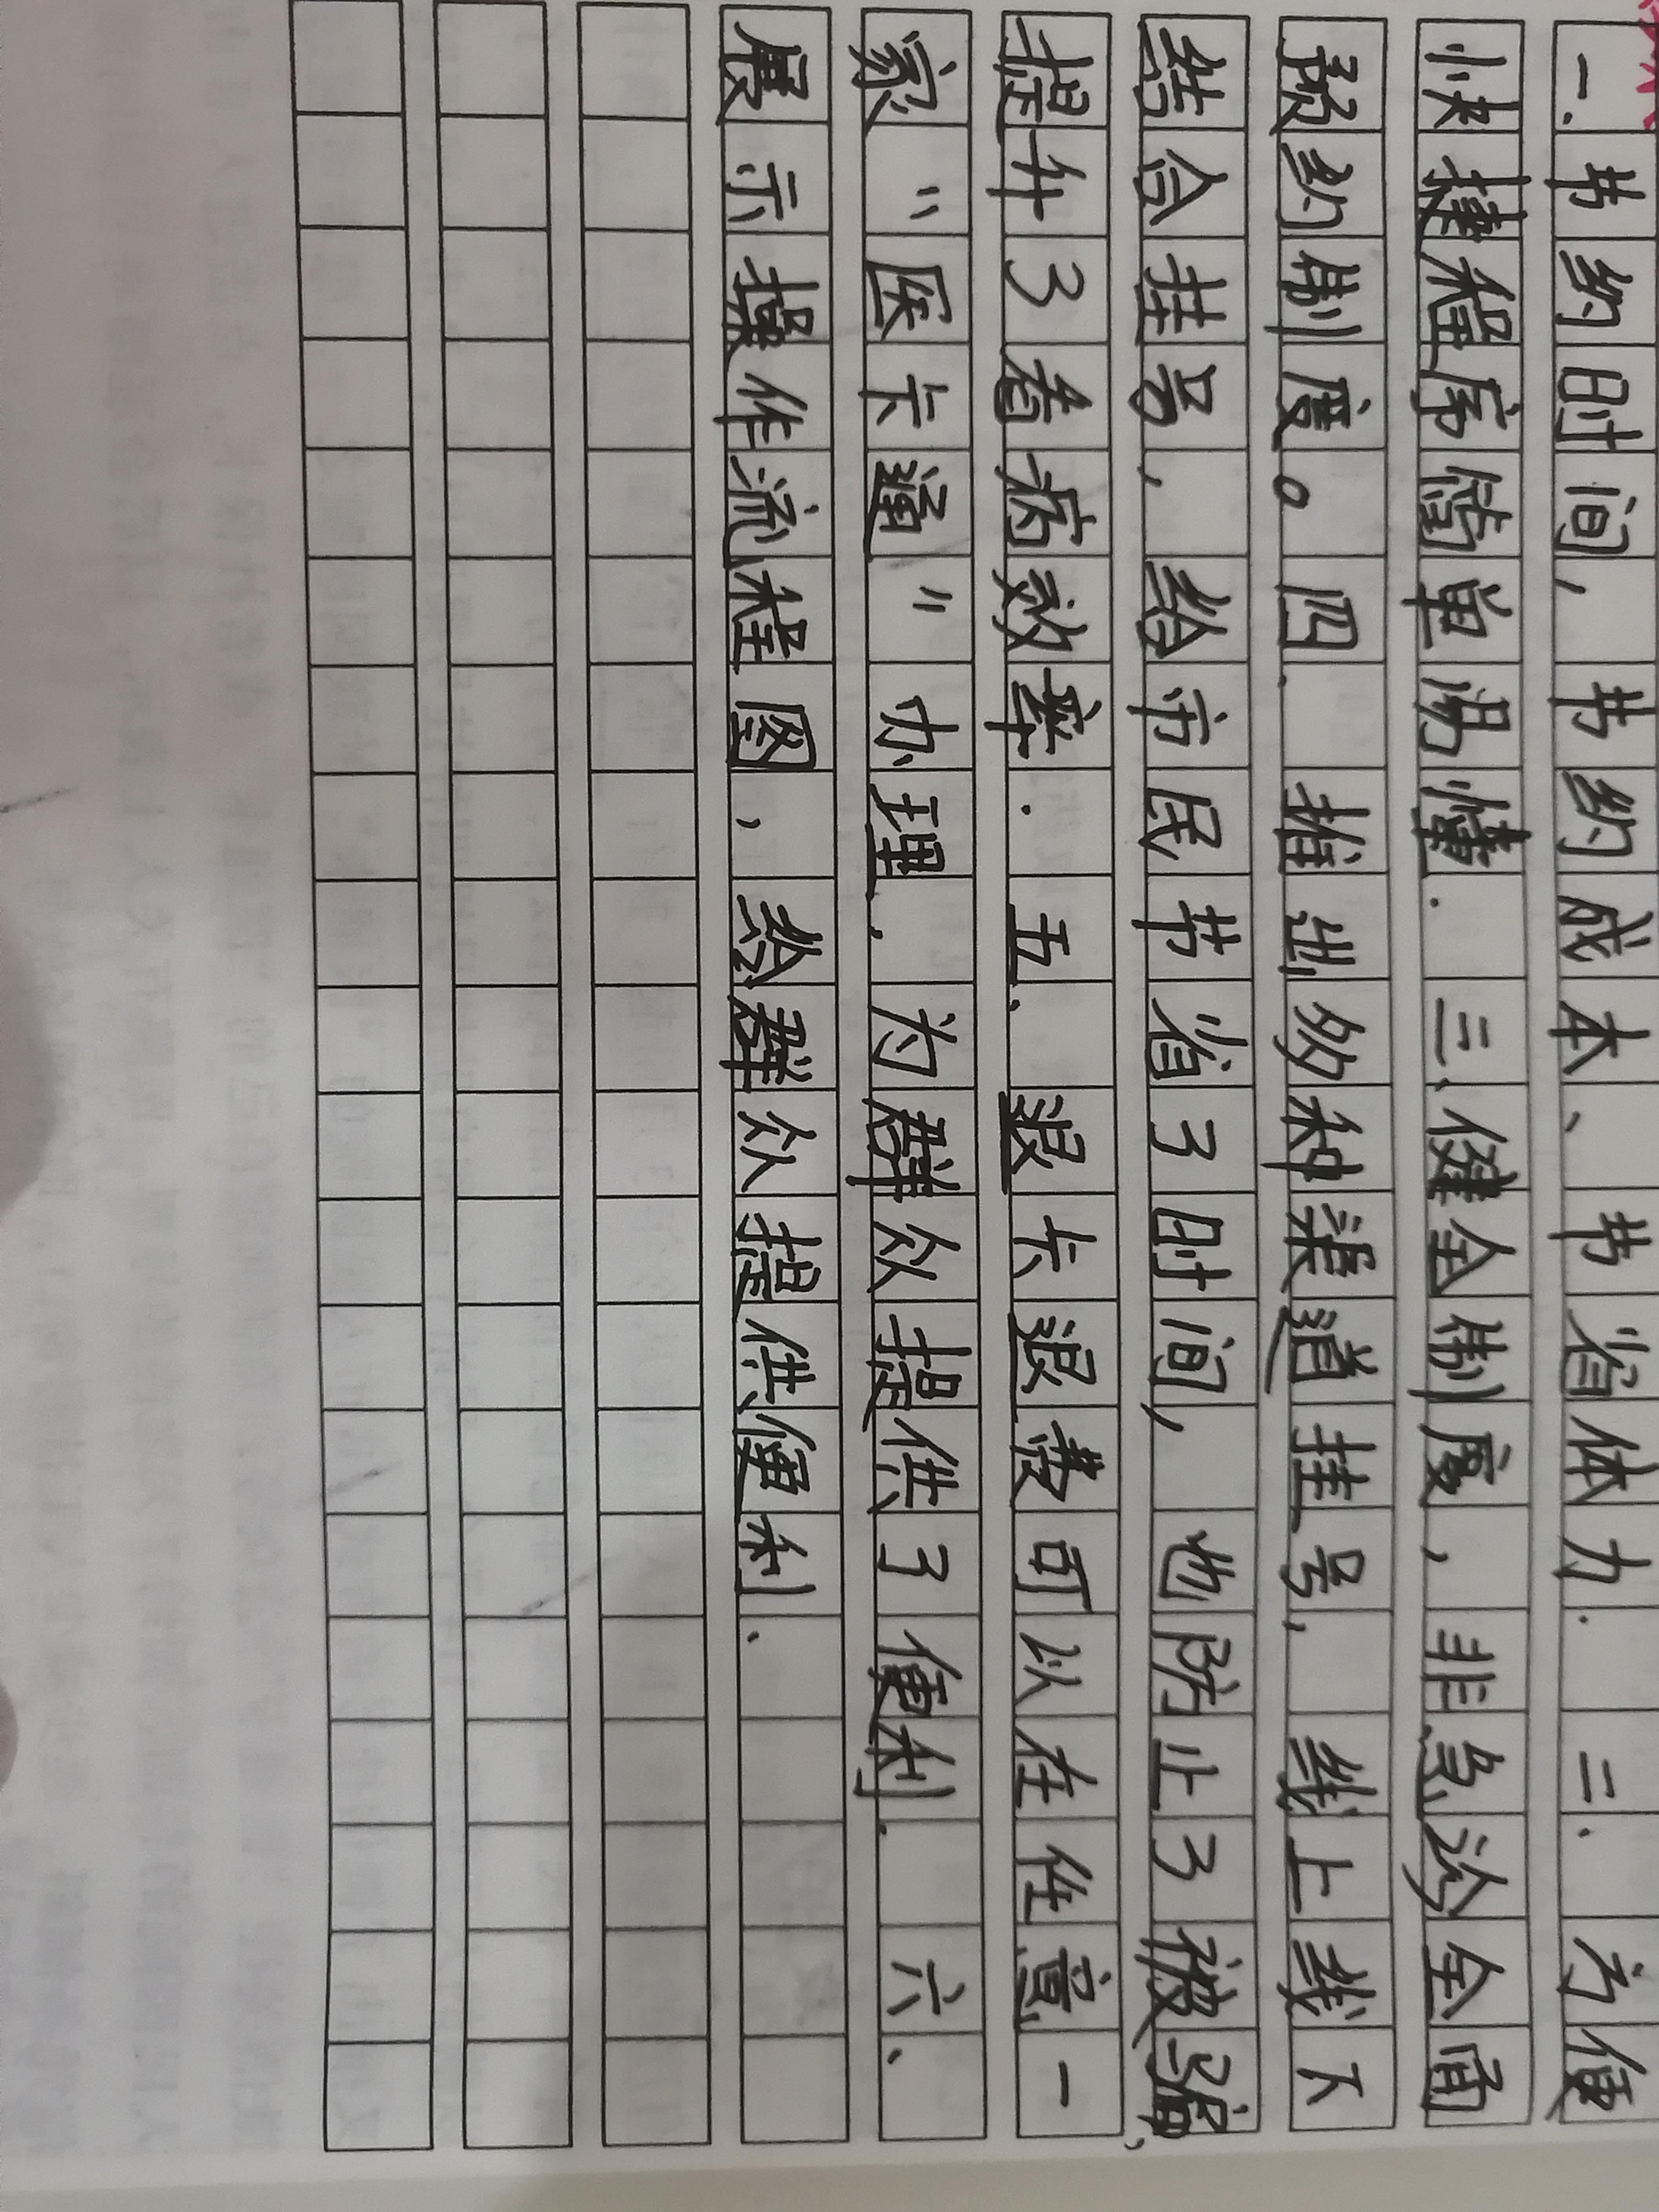 一.节约时间,节约成本、节省体力.二.方便
快捷程序简单易懂.三、健全制度,非急诊全面
预约制度。四.推出多种渠道挂号,线上线下
结合挂号,给市民节省了时间,也防止了被骗,
提升了看病效率.五、退卡退费可以在任意一
家“医卡通”办理,为群众提供了便利.六、
展示操作流程图,给群众提供便利.